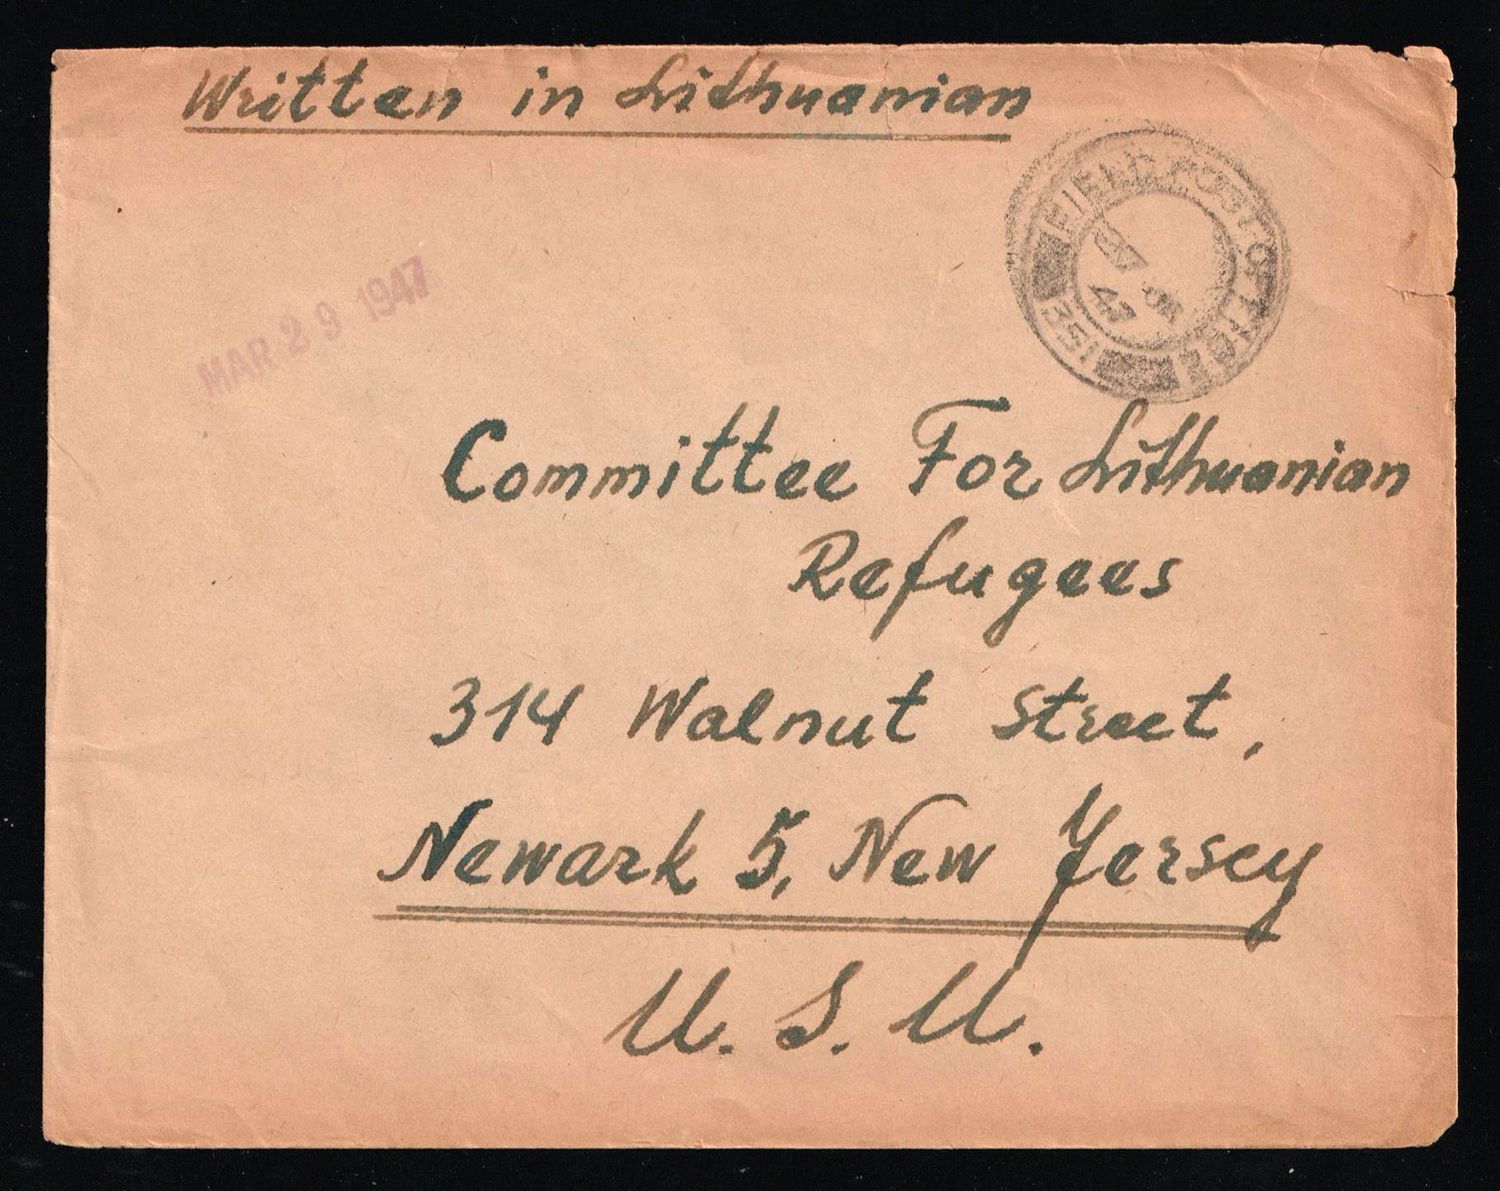 Written in Lithuanian
FIELD POST OFFICE
47
351
MAR 29 1947
Committee For Lithuanian
Refugees
314 Walnut Street,
Newark 5, New Jersey
U. S. A.